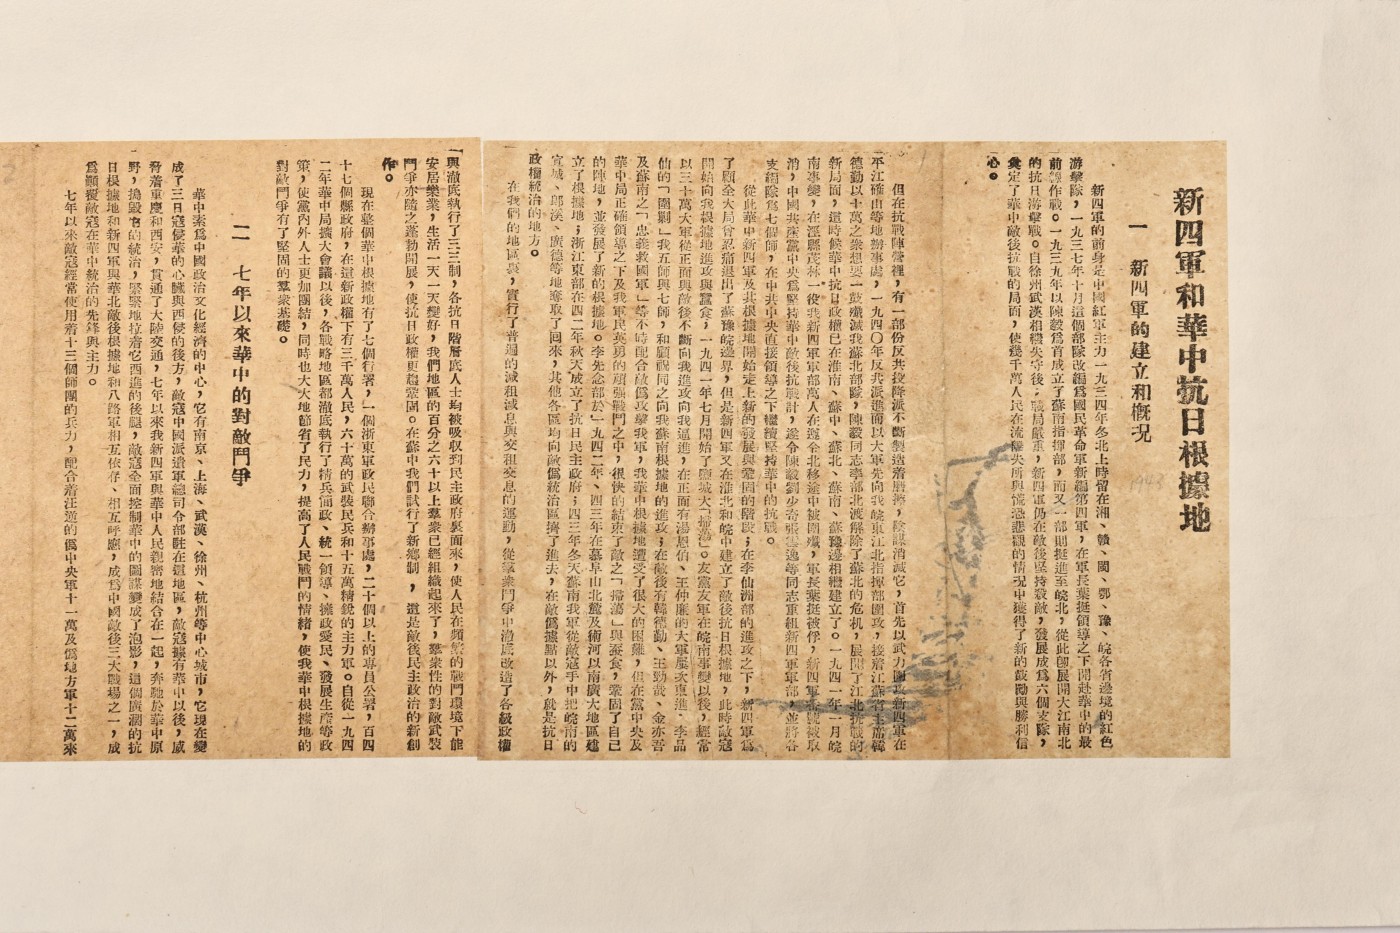 新四軍和華中抗日根據地
一 新四軍的建立和概况
新四軍的前身是中國紅軍主力一九三四年冬北上時留在湘、贛、閩、鄂、豫、皖各省邊境的紅色
游擊隊，一九三七年十月這個部隊改編爲國民革命軍新編第四軍，在軍長葉挺領導之下開赴華中的最
前線作戰。一九三九年以陳毅爲首成立了蘇南指揮部，而又一部則挺進至皖北，從此即展開大江南北
的抗日游擊戰。自徐州武漢相繼失守後，戰局嚴重，新四軍仍在敵後堅持殺敵，發展成爲六個支隊，
奠定了華中敵後抗戰的局面，使幾千萬人民在流離失所與慌恐悲觀的情况中獲得了新的鼓勵與勝利信
心。
但在抗戰陣營裡，有一部份反共投降派不斷製造着磨擦，陰謀消滅它，首先以武力圍攻新四軍在
平江確山等地辦事處，一九四〇年反共派進而以大軍先向我皖東江北指揮部圍攻，接着江蘇省主席韓
德勤以十萬之衆想要一鼓殲滅我蘇北部隊，陳毅同志率部北渡解除了蘇北的危机，展開了江北抗戰的
新局面，這時候華中抗日政權已在淮南、蘇中、蘇北、蘇南、蘇豫邊相繼建立了。一九四一年一月皖
南事變，在涇縣茂林一役我新四軍軍部萬人在遵令北移途中被圍殲，軍長葉挺被俘，新四軍番號被取
消，中國共產黨中央爲堅持華中敵後抗戰計，遂令陳毅劉少奇張雲逸等同志重組新四軍軍部，並將各
支縱隊爲七個師，在中共中央直接領導之下繼續堅持華中的抗戰。
從此華中新四軍及其根據地開始走上新的發展與鞏固的階段；在李仙洲部的進攻之下，新四軍爲
了顧全大局曾忍痛退出了蘇豫皖邊界，但是新四軍又在淮北和皖中建立了敵後抗日根據地，此時敵寇
開始向我根據地進攻與蠶食，一九四一年七月開始了鹽城大「掃蕩」。友黨友軍在皖南事變以後，經常
以三十萬大軍從正面與敵後不斷向我進攻向我逼進，在正面有湯恩伯、王仲廉的大軍屢次東進，李品
仙的「圍剿」我五師與七師，和顧祝同之向我蘇南根據地的進攻；在敵後有韓德勤、王勁哉、金亦吾
及蘇南之「忠義救國軍」等不時配合敵僞攻擊我軍，我華中根據地遭受了很大的困難，但在黨中央及
華中局正確領導之下及我軍民英勇的頑强戰鬥之中，很快的結束了敵之「掃蕩」與蚕食，鞏固了自己
的陣地，並發展了新的根據地。李先念部於一九四二年、四三年在慕早山北麓及術河以南廣大地區建
立了根據地；浙江東部在四二年秋天成立了抗日民主政府；四三年冬天蘇南我軍從敵寇手中把皖南的
宣城、郎溪、廣德等地奪取了回來，其他各區均向敵僞統治區擠了進去，在敵僞據點以外，就是抗日
政權統治的地方。
在我們的地區裏，實行了普遍的減租減息與交租交息的運動，從羣衆鬥爭中澈底改造了各級政權
與澈底執行了三三制，各抗日階層底人士均被吸收到民主政府裏面來，使人民在頻繁的戰鬥環境下能
安居樂業，生活一天一天變好，我們地區的百分之六十以上羣衆已經組織起來了，羣衆性的對敵武裝
鬥爭亦隨之蓬勃開展，使抗日政權更趨鞏固。在蘇中我們試行了新鄉制，這是敵後民主政治的新創
作。
現在整個華中根據地有了七個行署，一個浙東軍政民聯合辦事處，二十個以上的專員公署，一百四
十七個縣政府，在這新政權下有三千萬人民，六十萬的武裝民兵和十五萬精銳的主力軍。自從一九四
二年華中局擴大會議以後，各戰略地區都澈底執行了精兵簡政、統一領導、擁政愛民、發展生產等政
策，使黨內外人士更加團結，同時也大大地節省了民力，提高了人民戰鬥的情緒，使我華中根據地的
對敵鬥爭有了堅固的羣衆基礎。
二 七年以來華中的對敵鬥爭
華中素爲中國政治文化經濟的中心，它有南京、上海、武漢、徐州、杭州等中心城市，它現在變
成了三日寇侵華的心臟與西侵的後方，敵寇中國派遣軍總司令部駐在這地區，敵寇據有華中以後，威
脅着重慶和西安，貫通了大陸交通，七年以來我新四軍與華中人民親密地結合在一起，奔馳於華中原
野，搗毀它的統治，緊緊地拉着它西進的後腿，敵寇全面控制華中的圖謀變成了泡影，這個廣濶的抗
日根據地和新四軍與華北敵後根據地和八路軍相互依存、相互呼應，成爲中國敵後三大戰場之一，成
爲顚覆敵寇在華中統治的先鋒與主力。
七年以來敵寇經常使用着十三個師團的兵力，配合着汪逆的僞中央軍十一萬及僞地方軍十二萬來